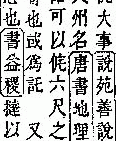 大事說苑善說
州名唐書地理
可以侂六尺之
也或為託 又
也書益稷撻以